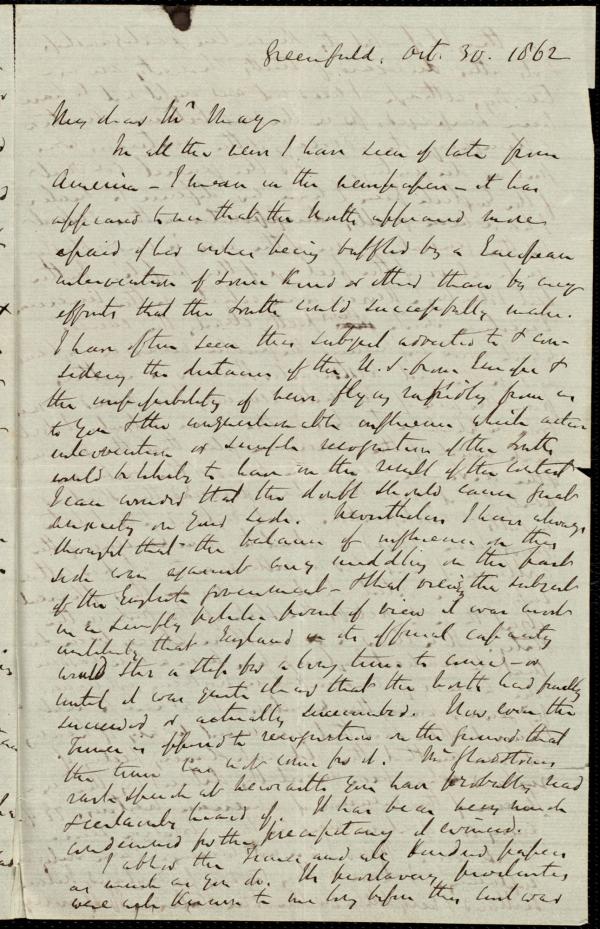 Greenfield. Oct. 30. 1862
My dear Mr May
In all the news I have seen of late from
America - I mean in the newspapers - it has
appeared to me that the North appeared more
afraid of her wishes being baffled by a European
intervention of some kind or other than by any
efforts that the South could successfully make.
I have often seen this subject adverted to & con-
sidering the distance of the U.S. from Europe &
the impossibility of news flying rapidly from us
to you & the unquestionable influence which active
intervention or simple recognition of the South
would be likely to have on the result of the contest
I can wonder that the doubt should cause great
anxiety on your side. Nevertheless I have always
thought that the balance of influence on this
side was against any meddling on the part
of the English government - & that viewing the subject
in a simply political point of view it was most
unlikely that England in its official capacity
would stir a step for a long time to come - or
until it was quite clear that the North had finally
succeeded or actually succumbed. Now, even the
Times is opposed to recognition on the ground that
the time has not come for it. Mr Gladstone's
rash speech at Newcastle you have probably read
certainly heard of. It has been very much
condemned for the precipitancy it evinced.
I abhor the Times and all kindred papers
as much as you do. Its proslavery proclivities
were well known to me long before this civil war